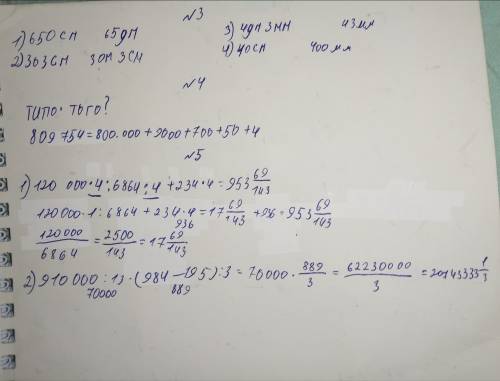 №3
1) 650 см 65 дм 3) 4 дм 3 мм 43 мм
2) 303 см 30 м 3 см 4) 40 см 400 мм
№4
типо того?
809 754 = 800.000 + 9000 + 700 + 50 + 4
№5
1) 120 000 · 4 : 6864 : 4 + 234 · 4 = 953 69/143
120000 · 1 : 6864 + 234 · 4 = 17 69/143 + 936 = 953 69/143
936
120000/6864 = 2500/143 = 17 69/143
2) 910 000 : 13 · (984 − 95) : 3 = 70000 · 889/3 = 62230000/3 =
70000 889